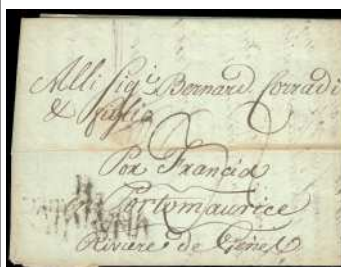 Alli Sigri Bernard. Corradi
& figlio
Por Francia
Portomaurice
Riviere de Genes